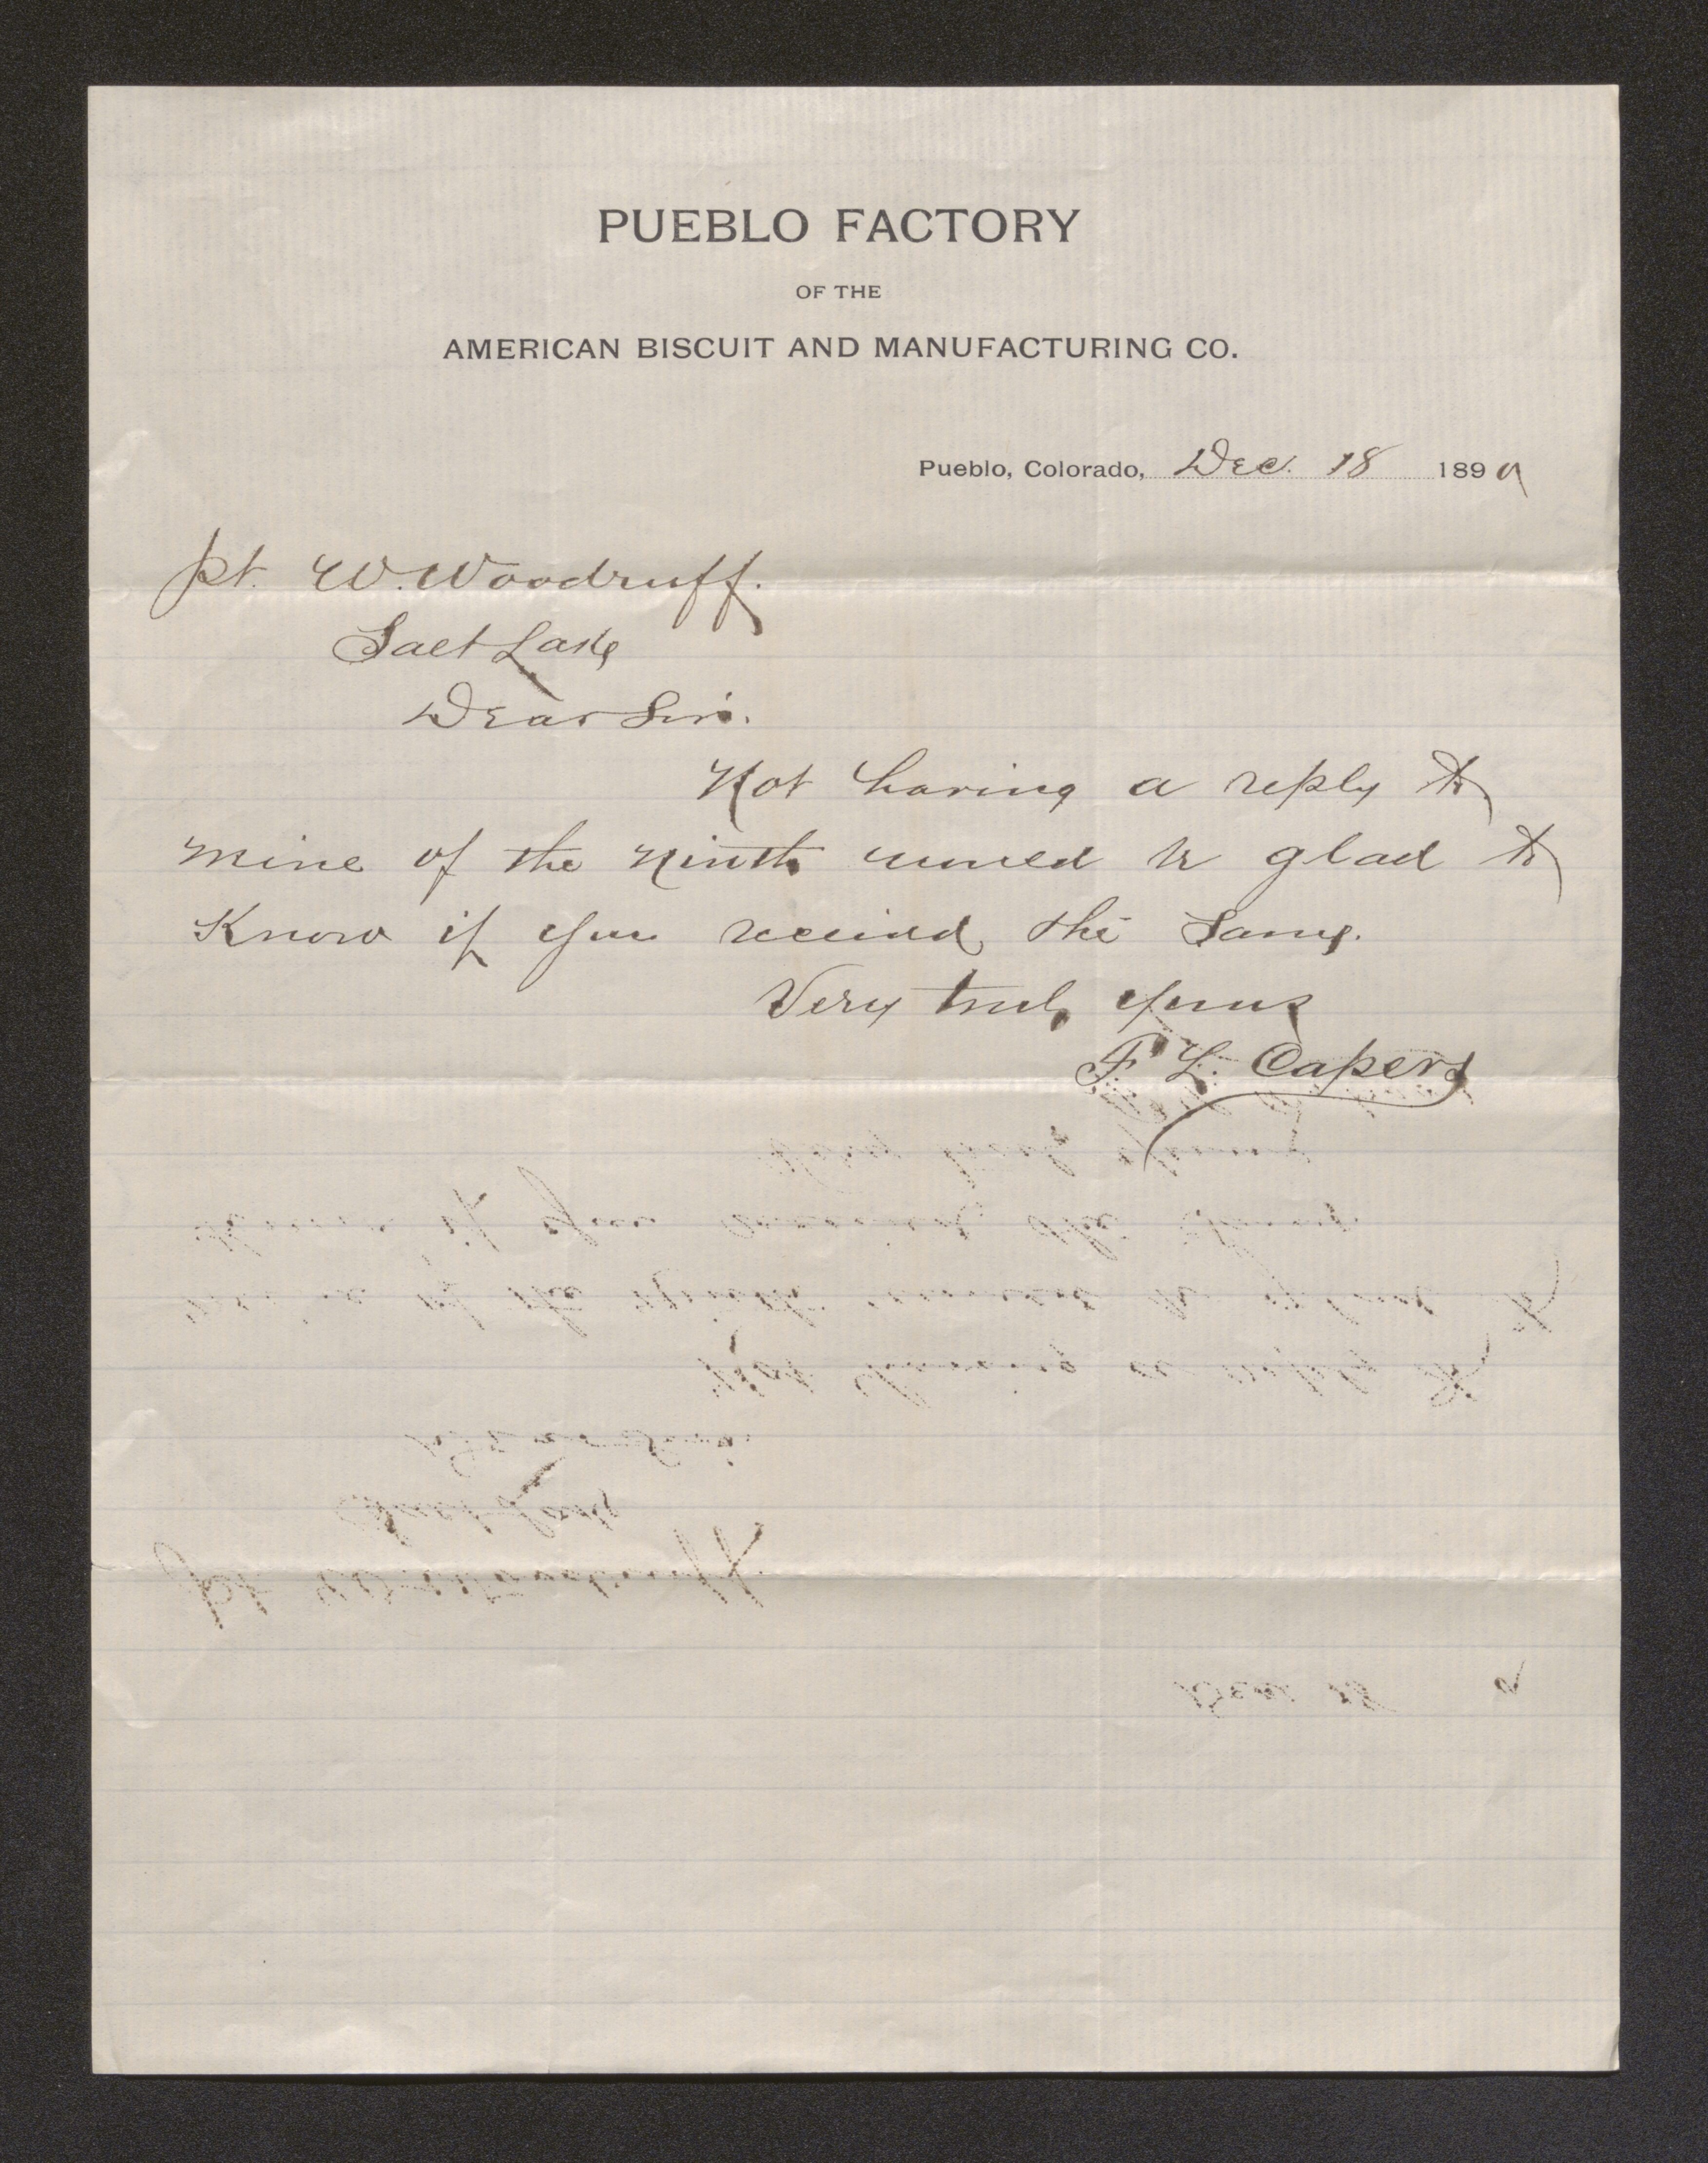 PUEBLO FACTORY
OF THE
AMERICAN BISCUIT AND MANUFACTURING CO.
Pueblo, Colorado, Dec. 18 189
pt. W. Woodruff.
Salt Lake
Dear Sir.
Not having a reply to
mine of the Ninth would be glad to
Know if you received the Same.
Very truly yours
F. L. Capers